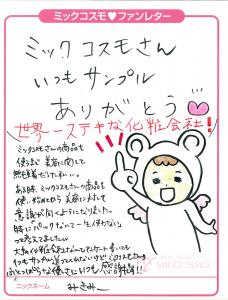 ミックコスモ♥ファンレター
ミックコスモさん
いつもサンプル
ありがとう
世界一ステキな化粧会社!
ミックコスモさんの商品を
使うまで美容に関して
無頓着だった私。
ある時、ミックコスモさんの商品を
使い始めてから美容に対して
意識が向くようになりました。
時に"パックなんて一生使わない"
って思ってましたw
いつもサンプル
感謝
MICCOSMO
ニックネーム
みきみー